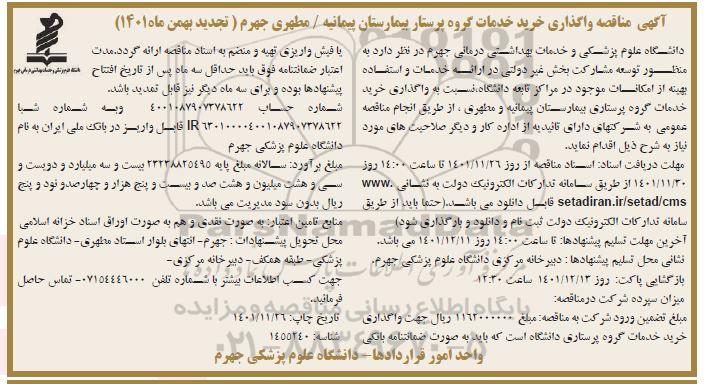 آگهی مناقصه واگذاری خرید خدمات گروه پرستار بیمارستان پیمانیه / مطهری جهرم ( تجدید بهمن ماه۱۴۰۱)
دانشگاه علوم پزشکی و خدمات بهداشتی درمانی جهرم در نظر دارد به
منظور توسعه مشارکت بخش غیر دولتی در ارائه خدمات و استفاده
بهینه از امکانات موجود در مراکز تابعه دانشگاه،نسبت به واگذاری خرید
خدمات گروه پرستاری بیمارستان پیمانیه و مطهری ، از طریق انجام مناقصه
عمومی به شرکتهای دارای تائیدیه از اداره کار و دیگر صلاحیت های مورد
نیاز به شرح ذیل اقدام نماید.
مهلت دریافت اسناد: اسناد مناقصه از روز ۱۴۰۱/۱۱/۲۶ تا ساعت ۱۴:۰۰ روز
۱۴۰۱/۱۱/۳۰ از طریق سامانه تدارکات الکترونیک دولت به نشانی www.
setadiran.ir/setad/cms قابل دانلود می باشد.(حتما باید از طریق
سامانه تدارکات الکترونیک دولت ثبت نام و دانلود و بارگذاری شود)
آخرین مهلت تسلیم پیشنهادها: تا ساعت ۱۴:۰۰ روز ۱۴۰۱/۱۲/۱۱ می باشد.
نشانی محل تسلیم پیشنهادها : دبیرخانه مرکزی دانشگاه علوم پزشکی جهرم.
بازگشایی پاکت: روز ۱۴۰۱/۱۲/۱۳ ساعت ۱۲:۳۰
میزان سپرده شرکت درمناقصه:
مبلغ تضمین ورود شرکت به مناقصه: مبلغ ۱۱۶۲۰۰۰۰۰۰۰ ریال جهت واگذاری
خرید خدمات گروه پرستاری دانشگاه است که باید به صورت ضمانتنامه بانکی
یا فیش واریزی تهیه و منضم به اسناد مناقصه ارائه گردد.مدت
اعتبار ضمانتنامه فوق باید حداقل سه ماه پس از تاریخ افتتاح
پیشنهادها بوده و برای سه ماه دیگر نیز قابل تمدید باشد.
شماره حساب ۴۰۰۱۰۸۷۹۰۷۳۷۸۶۲۲ وبه شماره شبا
IR ۶۳۰۱۰۰۰۰۴۰۰۱۰۸۷۹۰۷۳۷۸۶۲۲ قابل واریز در بانک ملی ایران به نام
دانشگاه علوم پزشکی جهرم
مبلغ برآورد: سالانه مبلغ پایه ۲۳۲۳۸۸۲۵۴۹۵ بیست و سه میلیارد و دویست و
سی و هشت میلیون و هشت صد و بیست و پنج هزار و چهارصدو نود و پنج
ریال بدون سود مدیریت می باشد.
منابع تامین اعتبار: به صورت نقدی و هم به صورت اوراق اسناد خزانه اسلامی
محل تحویل پیشنهادات : جهرم- انتهای بلوار استاد مطهری- دانشگاه علوم
پزشکی- طبقه همکف- دبیرخانه مرکزی-
جهت کسب اطلاعات بیشتر با شماره تلفن ۰۷۱۵۴۴۴۶۰۰۰ تماس حاصل
فرمائید.
تاریخ چاپ: ۱۴۰۱/۱۱/۲۶
شناسه: ۱۴۵۵۲۴۰
واحد امور قراردادها- دانشگاه علوم پزشکی جهرم
ParsNamadData
پایگاه اطلاع رسانی مناقصه و مزایده
۰۲۱-۸۸۳۴۹۶۷۰-۵